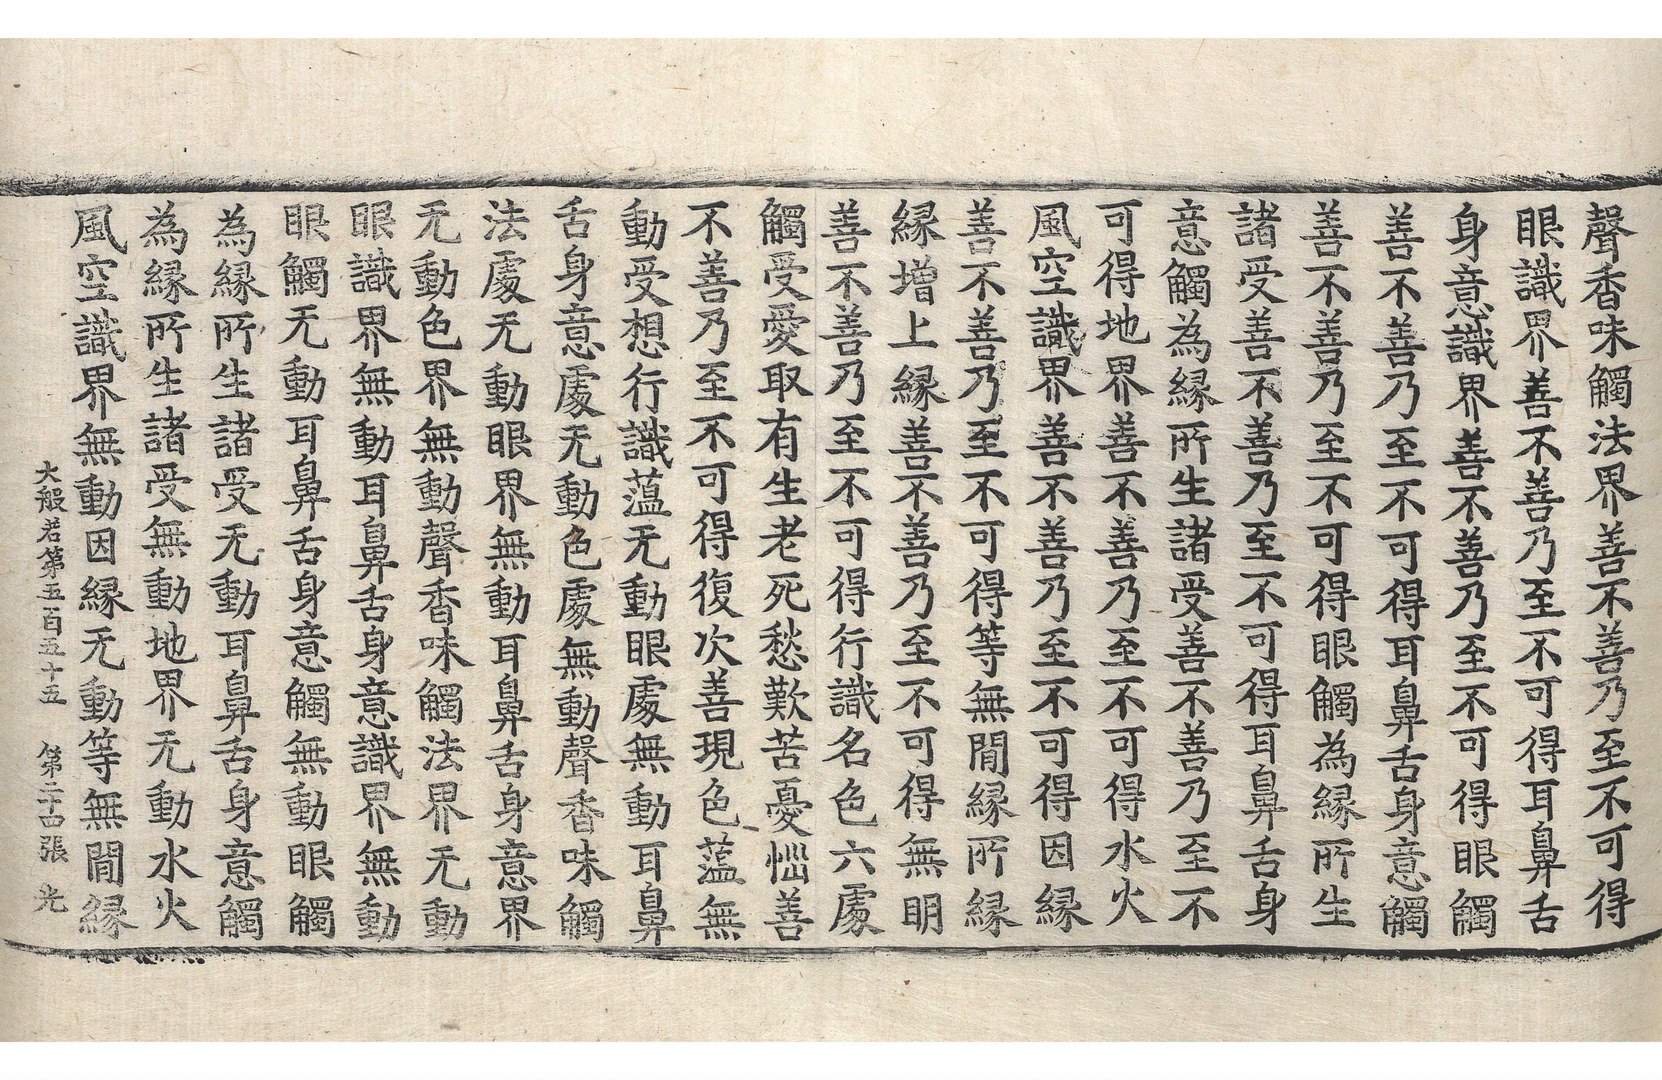 聲香味觸法界善不善乃至不可得
眼識界善不善乃至不可得耳鼻舌
身意識界善不善乃至不可得眼觸
善不善乃至不可得耳鼻舌身意觸
善不善乃至不可得眼觸為縁所生
諸受善不善乃至不可得耳鼻舌身
意觸為縁所生諸受善不善乃至不
可得地界善不善乃至不可得水火
風空識界善不善乃至不可得因縁
善不善乃至不可得等無閒縁所縁
縁增上縁善不善乃至不可得無眀
善不善乃至不可得行識名色六處
觸受愛取有生老死愁歎苦憂惱善
不善乃至不可得復次善現色蘊無
動受想行識蘊无動眼處無動耳鼻
舌身意處无動色處無動聲香味觸
法處无動眼界無動耳鼻舌身意界
无動色界無動聲香味觸法界无動
眼識界無動耳鼻舌身意識界無動
眼觸无動耳鼻舌身意觸無動眼觸
為縁所生諸受无動耳鼻舌身意觸
為縁所生諸受無動地界无動水火
風空識界無動因縁无動等無閒縁
大般若第五百五十五 第二十四張 光